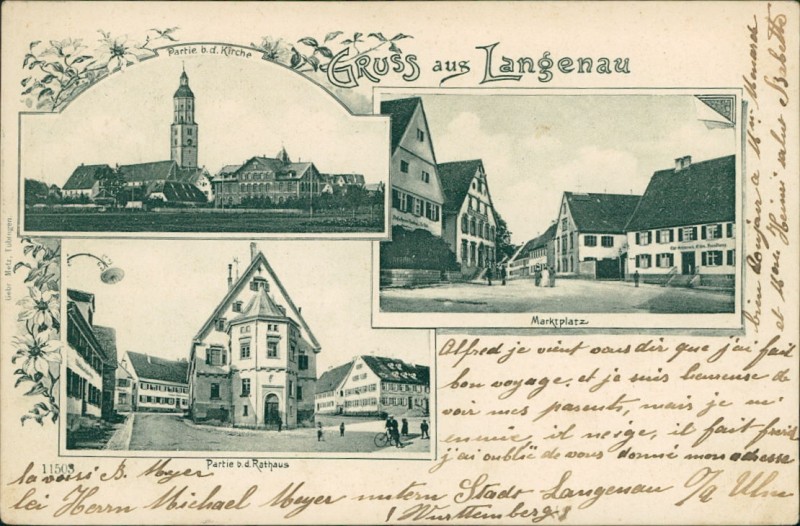 Partie b.d. Kirche
Gruss aus Langenau
Marktplatz
Partie b.d. Rathaus
11503
Gebr Metz, Tübingen.
Alfred je vient vous dir que j'ai fait
bon voyage, et je suis heureuse de
voir mes parents, mais je m'
ennuie, il neige, il fait froid
j'ai oublié de vous donné mon adresse
la voisi B. Meyer
bei Herrn Michael Meyer untern Stadt Langenau O/A Ulm
(Württemberg)
bien bonjour a Mm
et Henri salut Babette